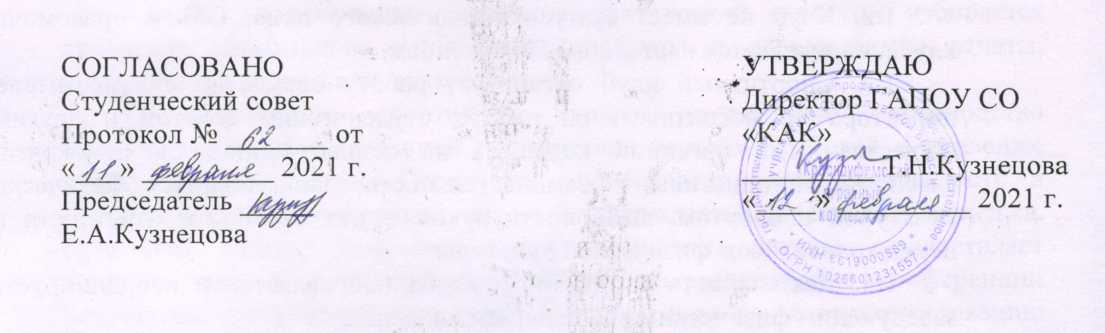 СОГЛАСОВАНО
Студенческий совет
Протокол № 02 от
«11» февраля 2021 г.
Председатель
Е.А.Кузнецова
УТВЕРЖДАЮ
Директор ГАПОУ СО
«КАК»
Т.Н.Кузнецова
«12» февраля 2021 г.
Красноуфимский аграрный колледж
ИНН 6619000599
ОГРН 1026601231557